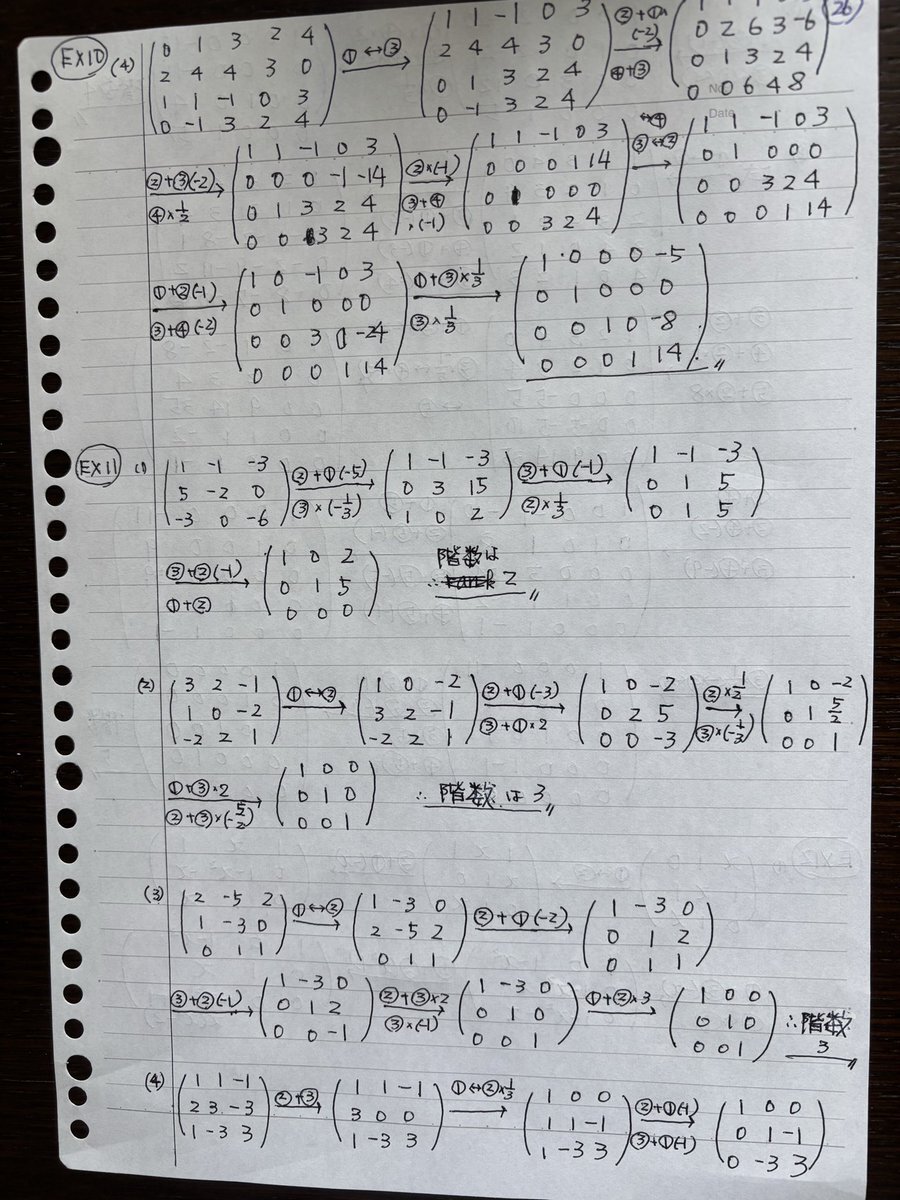 26
EX10 (4) (0 1 3 2 4 / 2 4 4 3 0 / 1 1 -1 0 3 / 0 -1 3 2 4) ①↔③ → (1 1 -1 0 3 / 2 4 4 3 0 / 0 1 3 2 4 / 0 -1 3 2 4) ②+①×(-2) ④+③ → (0 2 6 3 -6 / 0 1 3 2 4 / 0 0 6 4 8)
Date
②+③(-2) ④×1/2 → (1 1 -1 0 3 / 0 0 0 -1 -14 / 0 1 3 2 4 / 0 0 3 2 4) ②×(-1) ③+④×(-1) → (1 1 -1 0 3 / 0 0 0 1 14 / 0 1 0 0 0 / 0 0 3 2 4) ↔④ ③↔② → (1 1 -1 0 3 / 0 1 0 0 0 / 0 0 3 2 4 / 0 0 0 1 14)
①+②(-1) ③+④(-2) → (1 0 -1 0 3 / 0 1 0 0 0 / 0 0 3 0 -24 / 0 0 0 1 14) ①+③×1/3 ③×1/3 → (1 0 0 0 -5 / 0 1 0 0 0 / 0 0 1 0 -8 / 0 0 0 1 14)
EX11 (1) (1 -1 -3 / 5 -2 0 / -3 0 -6) ②+①(-5) ③×(-1/3) → (1 -1 -3 / 0 3 15 / 1 0 2) ③+①(-1) ②×1/3 → (1 -1 -3 / 0 1 5 / 0 1 5)
③+②(-1) ①+② → (1 0 2 / 0 1 5 / 0 0 0) ∴ 階数は 2
(2) (3 2 -1 / 1 0 -2 / -2 2 1) ①↔② → (1 0 -2 / 3 2 -1 / -2 2 1) ②+①(-3) ③+①×2 → (1 0 -2 / 0 2 5 / 0 0 -3) ②×1/2 ③×(-1/3) → (1 0 -2 / 0 1 5/2 / 0 0 1)
①+③×2 ②+③×(-5/2) → (1 0 0 / 0 1 0 / 0 0 1) ∴ 階数は 3
(3) (2 -5 2 / 1 -3 0 / 0 1 1) ①↔② → (1 -3 0 / 2 -5 2 / 0 1 1) ②+①(-2) → (1 -3 0 / 0 1 2 / 0 1 1)
③+②(-1) → (1 -3 0 / 0 1 2 / 0 0 -1) ②+③×2 ③×(-1) → (1 -3 0 / 0 1 0 / 0 0 1) ①+②×3 → (1 0 0 / 0 1 0 / 0 0 1) ∴階数 3
(4) (1 1 -1 / 2 3 -3 / 1 -3 3) ②+③ → (1 1 -1 / 3 0 0 / 1 -3 3) ①↔②×1/3 → (1 0 0 / 1 1 -1 / 1 -3 3) ②+①(-1) ③+①(-1) → (1 0 0 / 0 1 -1 / 0 -3 3)